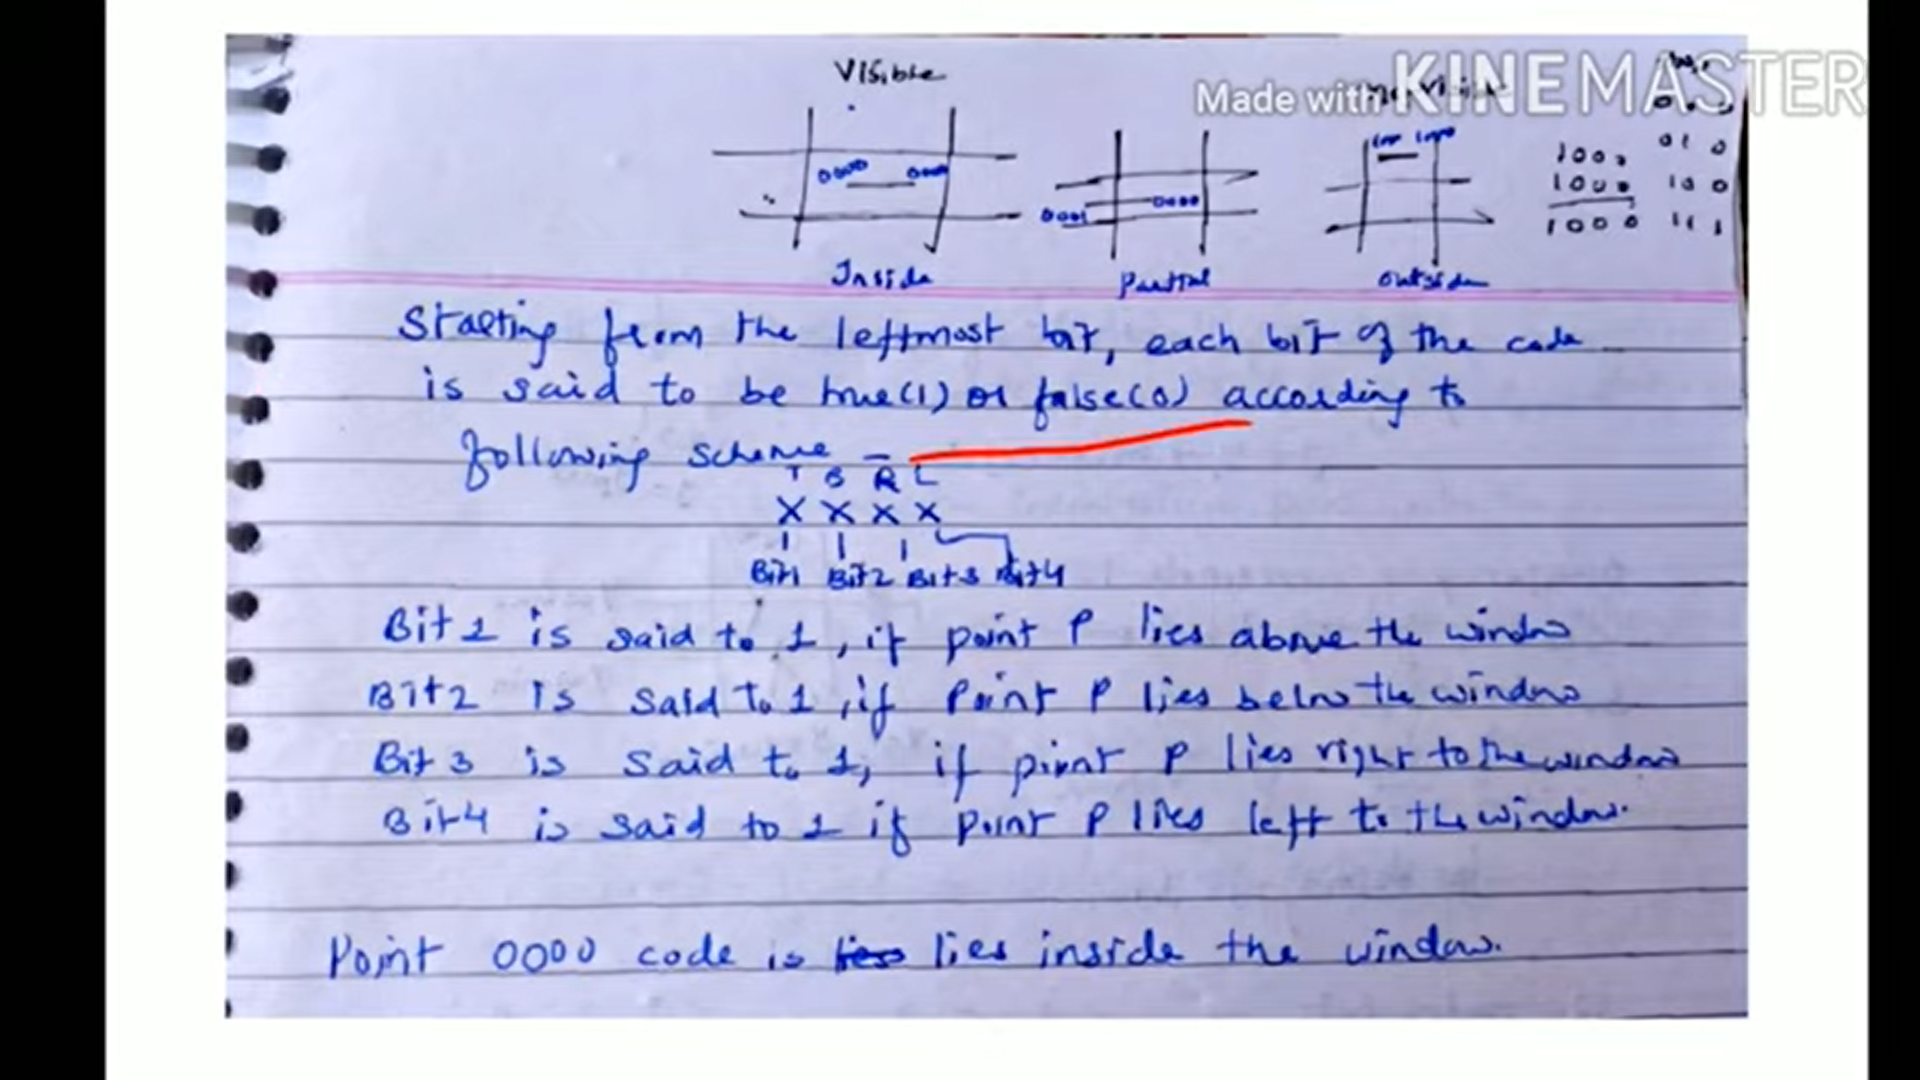 Visible
Made with KINEMASTER
0000 0000
0001 0000
1000
1000
1000
0 0 0
0 1 0
1 0 0
1 1 1
Inside Partial outside
Starting from the leftmost bit, each bit of the code
is said to be true(1) or false(0) according to
following scheme –
T B R L
X X X X
Bit1 Bit2 Bit3 Bit4
Bit 1 is said to 1, if point P lies above the window
Bit2 is said to 1, if Point P lies below the window
Bit 3 is said to 1, if point P lies right to the window
Bit4 is said to 1 if point P lies left to the window.
Point 0000 code is lies inside the window.